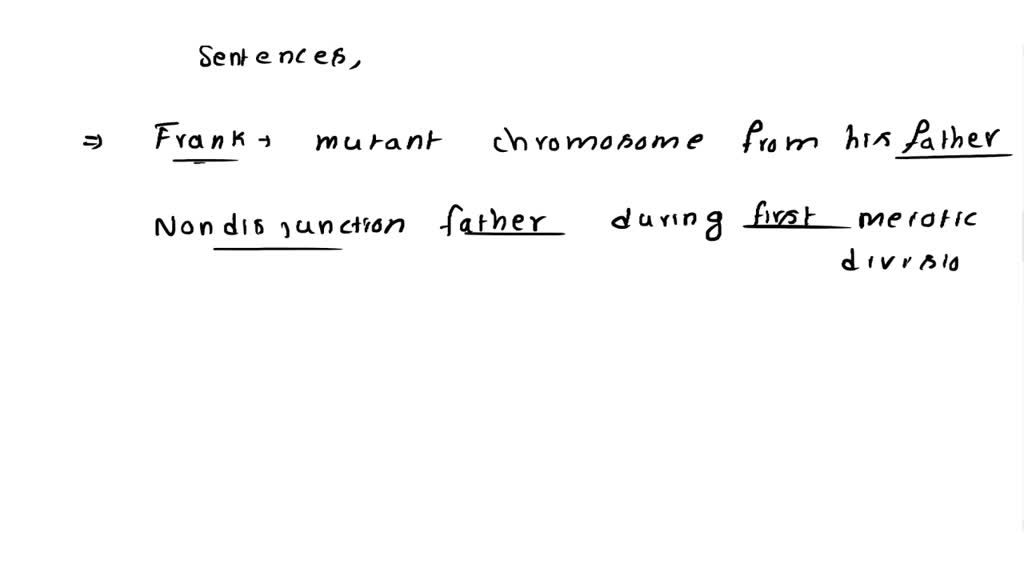 Sentences,
⇒ Frank → mutant chromosome from his father
Nondisjunction father during first meiotic
divisio